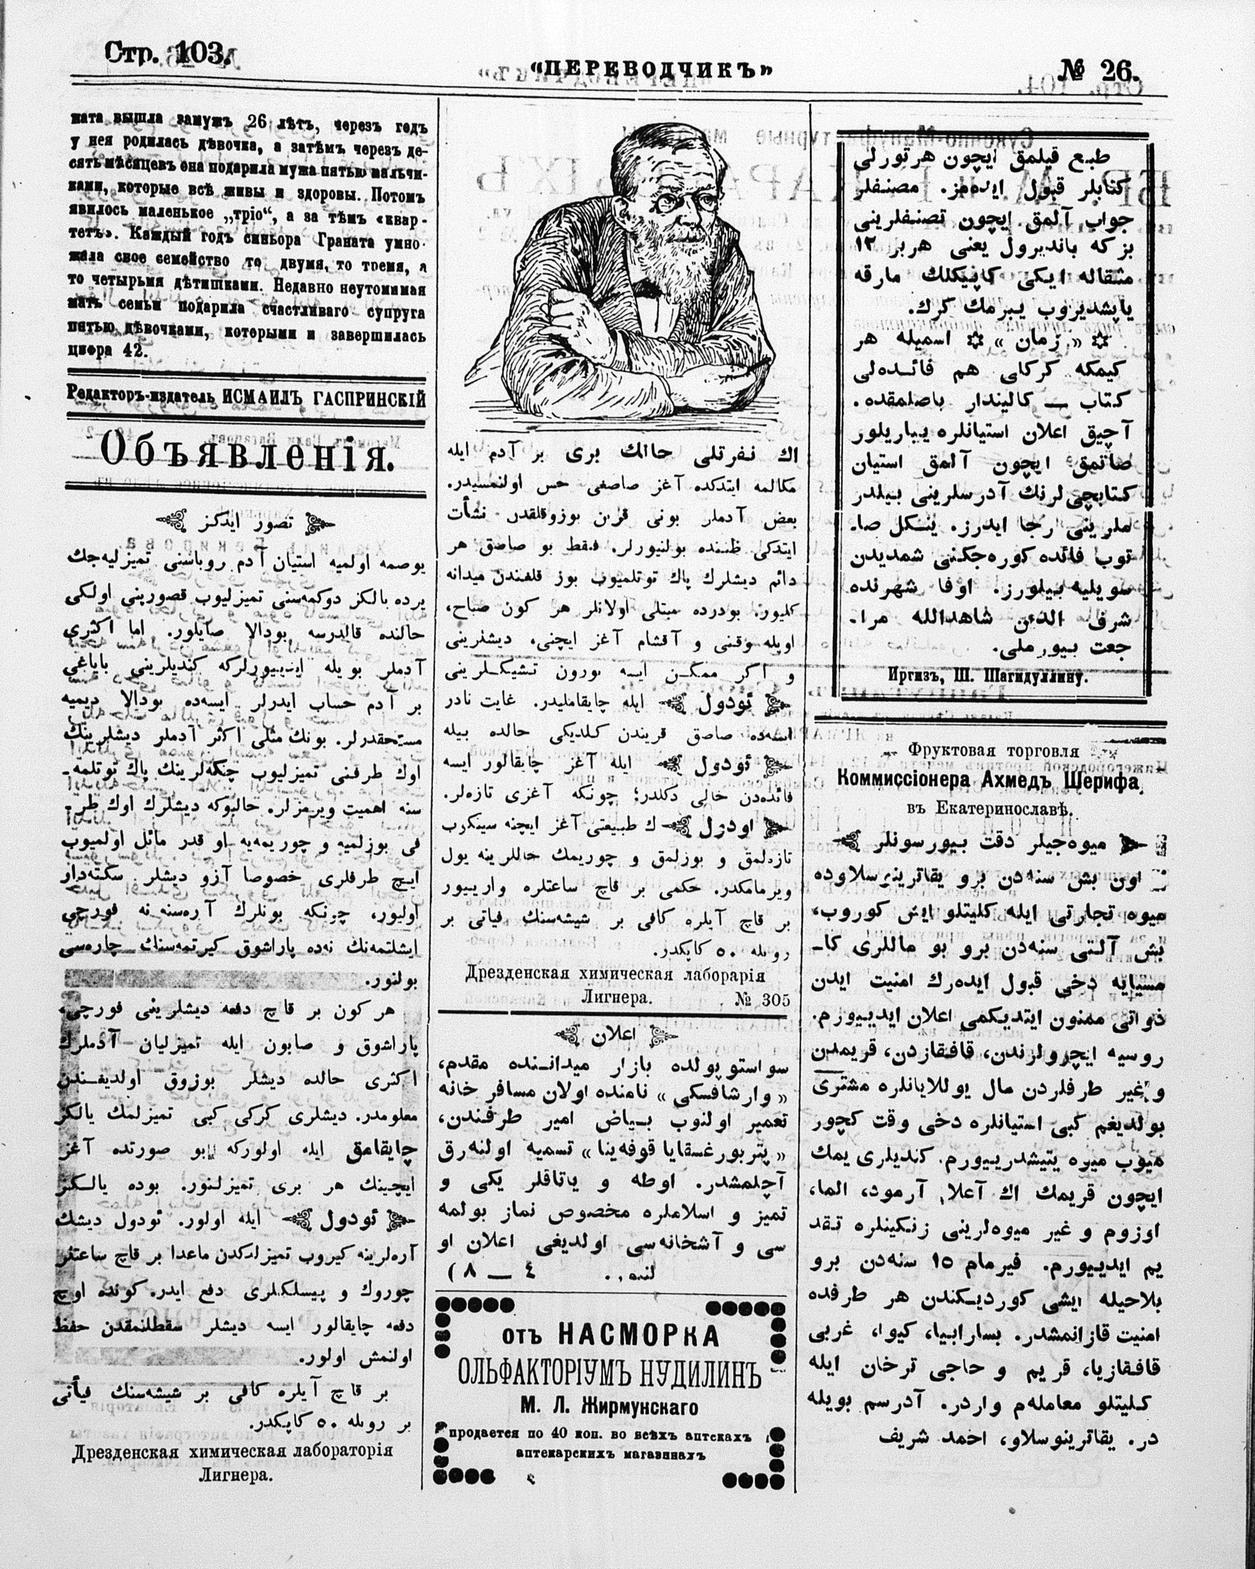 Стр. 103.
«ПЕРЕВОДЧИКЪ»
№ 26.
ната вышла замужъ 26 лѣтъ, черезъ годъ
у нея родилась дѣвочка, а затѣмъ черезъ де-
сять мѣсяцевъ она подарила мужа пятью мальчи-
ками, которые всѣ живы и здоровы. Потомъ
явилось маленькое „тріо“, а за тѣмъ «квар-
тетъ». Каждый годъ синьора Граната умно-
жала свое семейство то двумя, то тремя, а
то четырьмя дѣтишками. Недавно неутомимая
мать семьи подарила счастливаго супруга
пятью дѣвочками, которыми и завершилась
цифра 42.
Редакторъ-издатель ИСМАИЛЪ ГАСПРИНСКІЙ
Объявленія.
تصور ایدكز
یوصمه اولمیه استیان آدم روباسنی تمیزلیه‌جك
یرده یالكز دوكمه‌سنی تمیزلیوب قصورینی اولكی
حالنده قالدرسه بودالا صایلور. اما اكثری
آدملر بویله ایدییورلركه كندیلرینی بایاغی
بر آدم حساب ایدرلر ایسه‌ده بودالا دیمیه
مستحقدرلر. بونك مثلی اكثر آدملر دیشلرینك
اوك طرفنی تمیزلیوب چكه‌لرینك پاك توتلمه-
سنه اهمیت ویرمزلر. حالبوكه دیشلرك اوك طر-
فی بوزلمیه و چوریمه‌یه او قدر مائل اولمیوب
ایچ طرفلری خصوصا آزو دیشلر سكته‌دار
اولیور، چونكه بونلرك آره‌سنه نه فورچی
ایشلتمه‌نك نه‌ده پاراشوق كیرتمه‌سنك چاره‌سی
بولنور.
هر كون بر قاچ دفعه دیشلرینی فورچی،
پاراشوق و صابون ایله تمیزلیان آدملرك
اكثری حالده دیشلر بوزوق اولدیغندن
معلومدر. دیشلری كركی كبی تمیزلمك یالكز
چایقامق ایله اولوركه بو صورتده آغز
ایچینك هر بری تمیزلنور. بوده یالكز
ئودول ایله اولور. ئودول دیشك
آره‌لرینه كیروب تمیزلدكدن ماعدا بر قاچ ساعتلر
چوروك و پیسلكلری دفع ایدر. كونده اوچ
دفعه چایقالور ایسه دیشلر سقطلنمقدن حفظ
اولنمش اولور.
بر قاچ آیلره كافی بر شیشه‌سنك فیأتی
بر روبله ٥٠ كاپكدر.
Дрезденская химическая лабораторія
Лигнера.
اك نفرتلی حالك بری بر آدم ایله
مكالمه ایتدكده آغز صاصغی حس اولنمسیدر.
بعض آدملر بونی قرن بوزوقلقدن نشأت
ایتدكی ظننده بولنیورلر. فقط بو صاصق هر
دائم دیشلرك پاك توتلمیوب بوز قلغندن میدانه
كلیور. بودرده مبتلی اولانلر هر كون صباح،
اویله وقتی و آقشام آغز ایچنی. دیشلرینی
و اكر ممكن ایسه بورون تشیكلرینی
ئودول ایله چایقاملیدر. غایت نادر
ایسه‌ده صاصق قریندن كلدیكی حالده بیله
ئودول ایله آغز چایقالور ایسه
فائده‌دن خالی دكلدر؛ چونكه آغزی تازه‌لر.
اودول ك طبیعتی آغز ایچنه سینكرب
تازه‌لمق و بوزلمق و چوریمك حاللرینه یول
ویرمامكدر. حكمی بر قاچ ساعتلره وارییور
بر قاچ آیلره كافی بر شیشه‌سنك فیاتی بر
روبله ٥٠ كاپكدر.
Дрезденская химическая лаборарія
Лигнера. № 305
اعلان
سواستوپولده بازار میداننده مقدم،
« وارشافسكی » نامنده اولان مسافر خانه
تعمیر اولنوب بیاض امیر طرفندن،
« پتربورغسقایا قوفه‌ینا » تسمیه اولنه‌رق
آچلمشدر. اوطه و یاتاقلر یكی و
تمیز و اسلاملره مخصوص نماز بولمه
سی و آشخانه‌سی اولدیغی اعلان او
٤ — ٨ )
отъ НАСМОРКА
ОЛЬФАКТОРІУМЪ НУДИЛИНЪ
М. Л. Жирмунскаго
продается по 40 коп. во всѣхъ аптекахъ
аптекарскихъ магазинахъ
طبع قیلمق ایچون هرتورلی
كتابلر قبول ایده‌مز. مصنفلر
جواب آلمق ایچون تصنفلرینی
بزكه باندیرول یعنی هربر ١٢
مثقاله ایكی كاپیكلك مارقه
یاپشدیروب یبرمك كرك.
« زمان » اسمیله هر
كیمكه كركلی هم فائده‌لی
كتاب — كالیندار باصلمقده.
آچیق اعلان استیانلره یباریلور
صاتمق ایچون آلمق استیان
كتابچی‌لرنك آدرسلرینی بیلدر
ملرینی رجا ایدرز. یتكل صا-
توب فائده كوره‌جكنی شمدیدن
سویلیه بیلورز. اوفا شهرنده
شرف الدین شاهدالله مرا-
جعت بیورملی.
Иргизъ, Ш. Шагидуллину.
Фруктовая торговля
Коммиссіонера Ахмедъ Шерифа,
въ Екатеринославѣ.
میوه‌جیلر دقت بیورسونلر
اون بش سنه‌دن برو یقاترینوسلاوده
میوه تجارتی ایله كلیتلو ایش كوروب،
بش آلتی سنه‌دن برو بو ماللری كا-
مسیایه دخی قبول ایده‌رك امنیت ایدن
ذواتی ممنون ایتدیكمی اعلان ایدییورم.
روسیه ایچرولرندن، قافقازدن، قریمدن
و غیر طرفلردن مال یوللایانلره مشتری
بولدیغم كبی استیانلره دخی وقت كچور
میوب میوه یتیشدرییورم. كندیلری یمك
ایچون قریمك اك آعلا، آرمود، الما،
اوزوم و غیر میوه‌لرینی زنكینلره تقد
یم ایدییورم. فیرمام ١٥ سنه‌دن برو
بلاحیله ایشی كوردیكندن هر طرفده
امنیت قازانمشدر. بسارابیا، كیوا، غربی
قافقازیا، قریم و حاجی ترخان ایله
كلیتلو معامله‌م واردر. آدرسم بویله
در. یقاترینوسلاو، احمد شریف